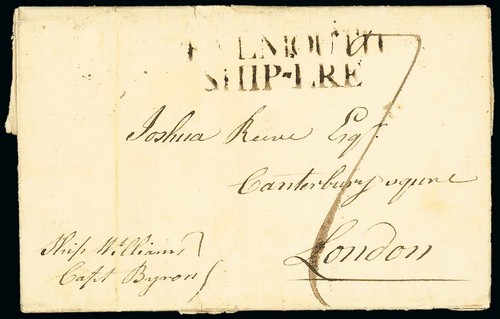 FALMOUTH
SHIP-LRE
Joshua Reeve Esqr.
Canterbury squre
London
Ship Williams
Capt Byron
7